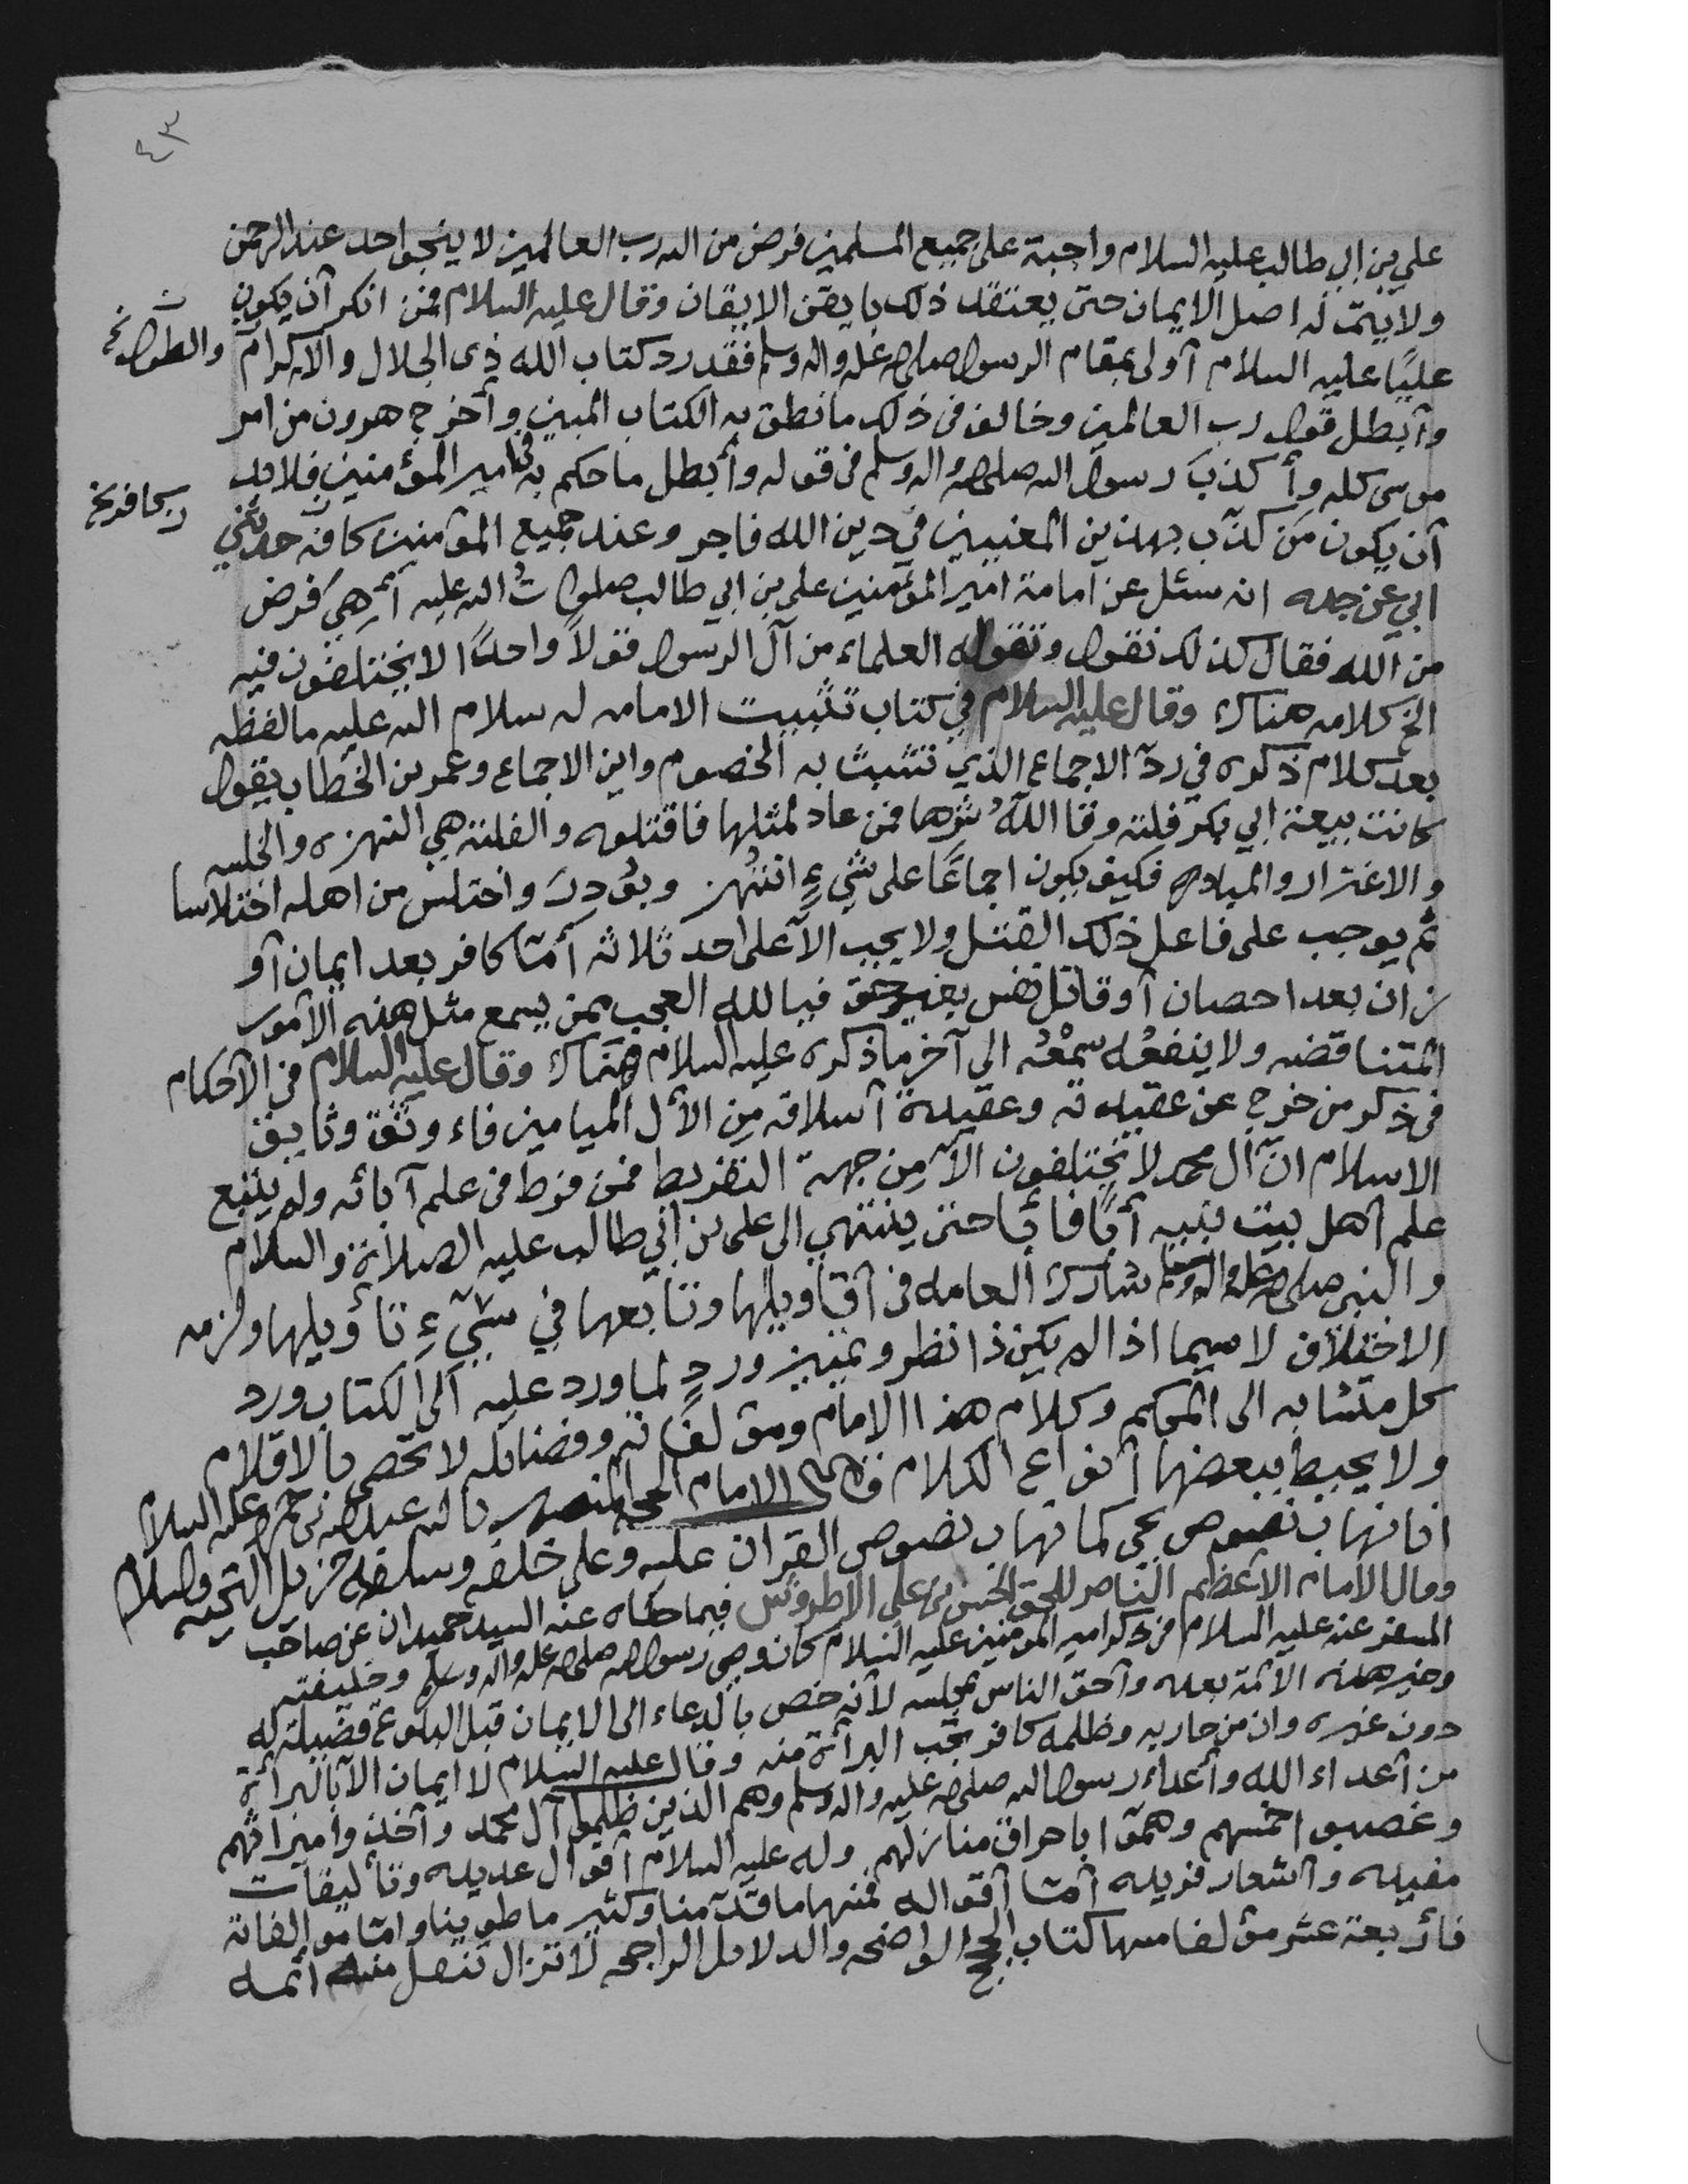 ٤٣
علي بن ابي طالب عليه السلام واجبة على جميع المسلمين فرض من الله رب العالمين لا ينجو احد عند الرحمن
ولا يتم له اصل الايمان حتى يعتقد ذلك بايقن الايقان وقال عليه السلام فمن انكر أن يكون
عليًا عليه السلام أولى بمقام الرسول صلى الله عليه واله وسلم فقد رد كتاب الله ذي الجلال والاكرام والطول نخ
وأبطل قول رب العالمين وخالف في ذلك ما نطق به الكتاب المبين وأخرج هرون من امر
موسى كله وأكذب رسول الله صلى الله واله وسلم في قوله وأبطل ما حكم به في امير المؤمنين فلابد
أن يكون من كذب بهذين المعنيين في دين الله فاجر وعند جميع المؤمنين كافر حدثني كافر نخ
ابي عن جده انه سئل عن امامة امير المؤمنين علي بن ابي طالب صلوات الله عليه أهي فرض
من الله فقال كذلك نقول وتقوله العلماء من آل الرسول قولاً واحدًا لا يختلفون فيه
الخ كلامه هناك وقال عليه السلام في كتاب تثبيت الامامه له سلام الله عليه ما لفظه
بعد كلام ذكره في ردّ الاجماع الذي تتشبث به الخصوم واين الاجماع وعمر بن الخطاب يقول
كانت بيعة ابي بكر فلتة وقا اللهُ شرها فمن عاد لمثلها فاقتلوه والفلتة هي النهزه والخلسه
والاغترار والمبادره فكيف يكون اجماعًا على شيءٍ انتُهز وبُودِرَ واختلس من اهله اختلاسا
ثم يوجب على فاعل ذلك القتل ولا يجب الا على احد ثلاثه أمّا كافر بعد ايمان أو
زان بعد احصان أو قاتل نفس بغير حق فيا لله العجب ممن يسمع مثل هذه الأمور
المتناقضه ولا ينفعُه سمْعُه الى آخر ما ذكره عليه السلام هناك وقال عليه السلام في الأحكام
في ذكر من خرج عن عقيدته وعقيدة أسلافه مِن الأل الميامين فاء وثق وثايق
الاسلام انّ آل محمد لا يختلفون الاّ مِن جهة التفريط فمن فرط في علم آبائه ولم يتبع
علم أهل بيت نبيه أبًا فأبا حتى ينتهي الى علي بن أبي طالب عليه الصلاة والسلام
والنبي صلى الله عليه واله وسلم شارك العامه في أقاويلها وتابعها في شيءٍ تأويلها ولزمه
الاختلاف لاسيما اذا لم يكن ذا نظر وتمييز وردٍ لما ورد عليه الى الكتاب ورد
كل متشابه الى المحكم وكلام هذا الامام ومؤلفاته وفضائله لا تحصى بالاقلام
ولا يحيط ببعضها أنواع الكلام قال الامام الحجه المنصور بالله عبدالله بن حمزه عليه السلام
انا نهاب نصوص يحيى كما نهاب نصوص القرآن عليه وعلى خلفه وسلفه جزيل التحيه والسلام
وقال الامام الأعظم الناصر للحق الحسن بن علي الاطروش فيما حكاه عنه السيد حميدان عن صاحب
المسفر عنه عليه السلام في ذكر امير المؤمنين عليه السلام كان وصي رسول الله صلى الله عليه واله وسلم وخليفته
وخير هذه الأئمة بعده وأحق الناس بمجلسه لأنه خص بالدعاء الى الايمان قبل البلوغ فضيلة له
دون غيره وان من حاربه وظلمه كافر تجب البرائة منه وقال عليه السلام لا ايمان الا بالبرائة
من أعداء الله وأعداء رسول الله صلى الله عليه واله وسلم وهم الذين ظلموا آل محمد وأخذوا ميراثهم
وغصبوا خمسهم وهمّوا باحراق منازلهم وله عليه السلام أقوال عديده وتأليفات
مفيده وأشعار فريده أمّا أقواله فمنها ما قدّمنا وكثير ما طوينا وامّا مؤالفاته
فأربعة عشر مؤلفا منها كتاب الحجج الواضحه والدلائل الراجحه لا تزال تنقل منه أئمه